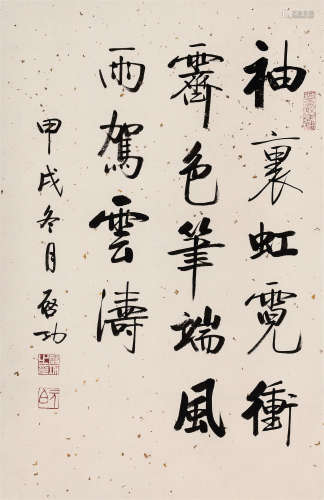 袖裏虹霓衝
霽色筆端風
雨駕雲濤
甲戌冬月啓功